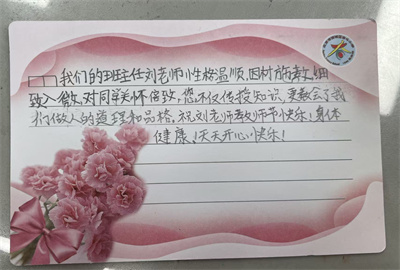 我们的班主任刘老师小生格温顺,因材施教,细
致入微,对同学关怀倍致,您不仅传授知识,更教会了我
们做人的道理和品格,祝刘老师教师节快乐!身体
健康,天天开心快乐!